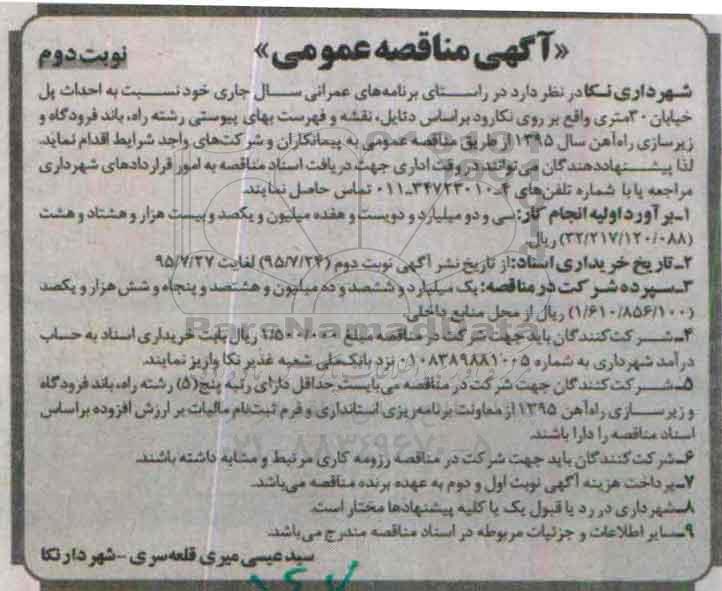 «آگهی مناقصه عمومی»
نوبت دوم
شهرداری نکا در نظر دارد در راستای برنامه‌های عمرانی سال جاری خود نسبت به احداث پل
خیابان ۳۰متری واقع بر روی نکارود براساس دتایل، نقشه و فهرست بهای پیوستی رشته راه، باند فرودگاه و
زیرسازی راه‌آهن سال ۱۳۹۵ از طریق مناقصه عمومی به پیمانکاران و شرکت‌های واجد شرایط اقدام نماید.
لذا پیشنهاددهندگان می‌توانند در وقت اداری جهت دریافت اسناد مناقصه به امور قراردادهای شهرداری
مراجعه یا با شماره تلفن‌های ۴ـ۳۴۷۲۳۰۱۰ـ۰۱۱ تماس حاصل نمایند.
۱ـ برآورد اولیه انجام کار: سی و دو میلیارد و دویست و هفده میلیون و یکصد و بیست هزار و هشتاد و هشت
(۳۲/۲۱۷/۱۲۰/۰۸۸) ریال.
۲ـ تاریخ خریداری اسناد: از تاریخ نشر آگهی نوبت دوم (۹۵/۷/۲۴) لغایت ۹۵/۷/۲۷
۳ـ سپرده شرکت در مناقصه: یک میلیارد و ششصد و ده میلیون و هشتصد و پنجاه و شش هزار و یکصد
(۱/۶۱۰/۸۵۶/۱۰۰) ریال از محل منابع داخلی.
۴ـ شرکت‌کنندگان باید جهت شرکت در مناقصه مبلغ ۱/۵۰۰/۰۰۰ ریال بابت خریداری اسناد به حساب
درآمد شهرداری به شماره ۰۱۰۸۳۸۹۸۸۱۰۰۵ نزد بانک ملی شعبه غدیر نکا واریز نمایند.
۵ـ شرکت‌کنندگان جهت شرکت در مناقصه می‌بایست حداقل دارای رتبه پنج(۵) رشته راه، باند فرودگاه
و زیرسازی راه‌آهن ۱۳۹۵ از معاونت برنامه‌ریزی استانداری و فرم ثبت‌نام مالیات بر ارزش افزوده براساس
اسناد مناقصه را دارا باشند.
۶ـ شرکت‌کنندگان باید جهت شرکت در مناقصه رزومه کاری مرتبط و مشابه داشته باشند.
۷ـ پرداخت هزینه آگهی نوبت اول و دوم به عهده برنده مناقصه می‌باشد.
۸ـ شهرداری در رد یا قبول یک یا کلیه پیشنهادها مختار است.
۹ـ سایر اطلاعات و جزئیات مربوطه در اسناد مناقصه مندرج می‌باشد.
سید عیسی میری قلعه‌سری - شهردار نکا
ParsNamadData